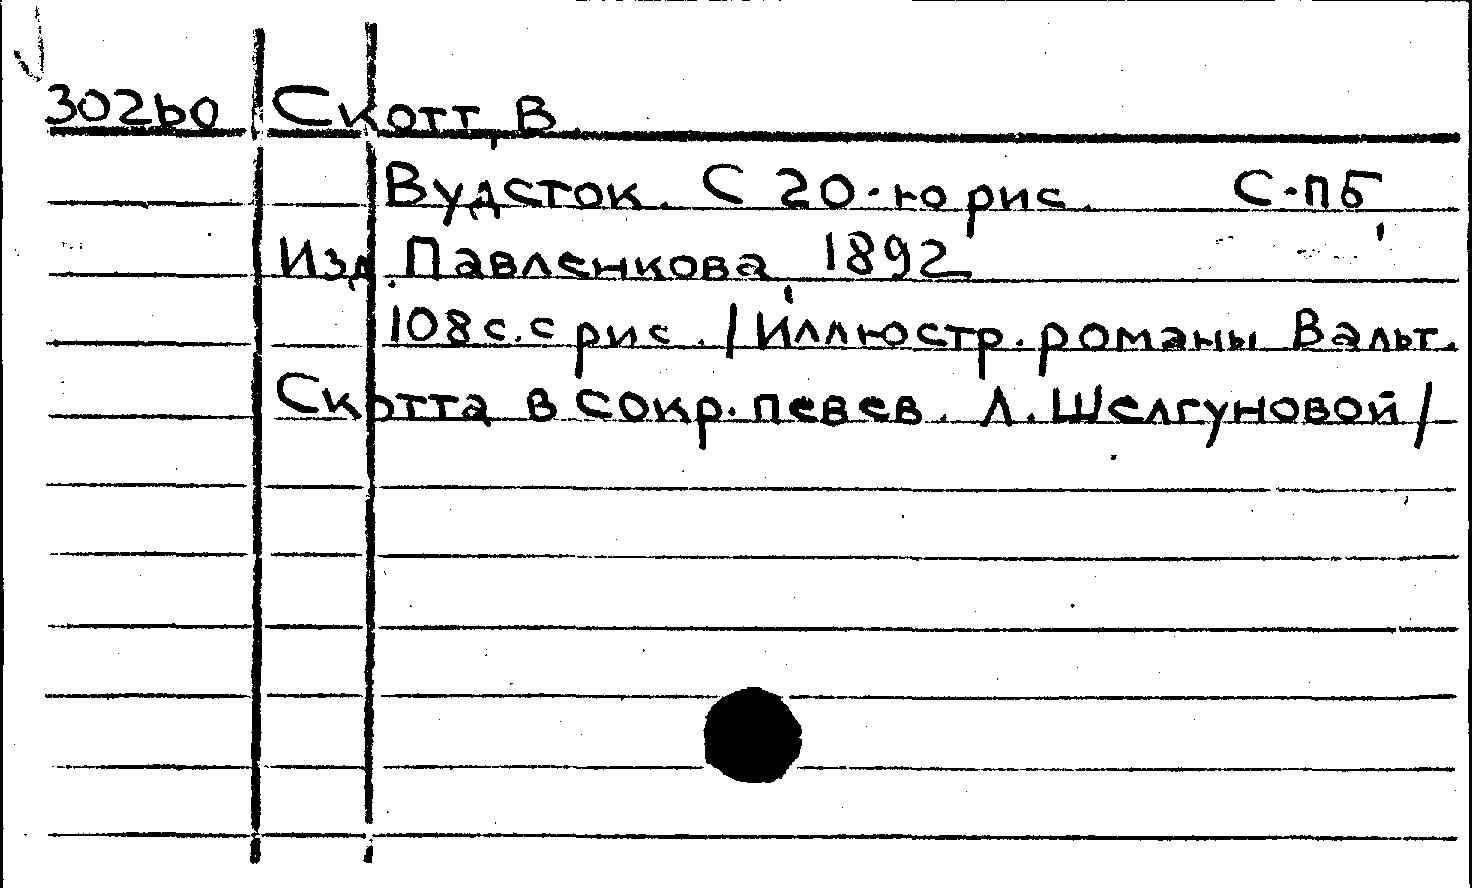 30260 Скотт, В
Вудсток. С 20-ю рис. С-ПБ,
Изд. Павленкова, 1892
108 с. с рис. /Иллюстр. романы Вальт.
Скотта в сокр. певев. Л. Шелгуновой/